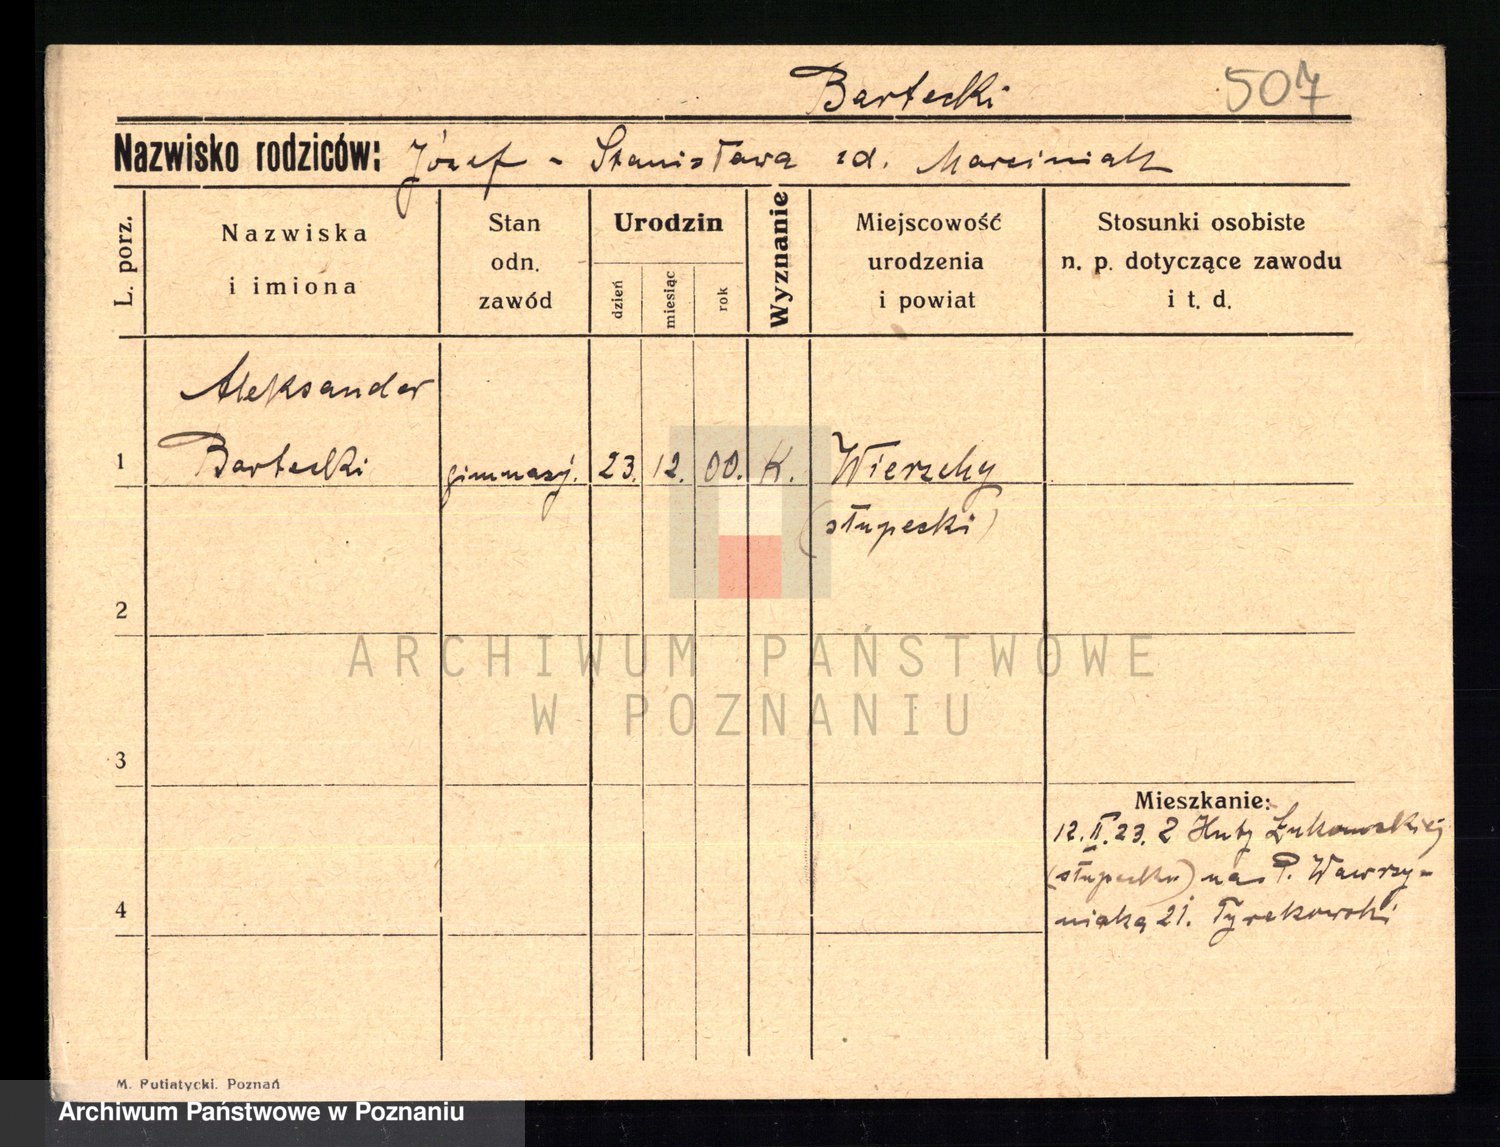 Bartecki 507
Nazwisko rodziców: Józef - Stanisława zd. Marciniak
L. porz.
Nazwiska
i imiona
Stan
odn.
zawód
Urodzin
dzień
miesiąc
rok
Wyznanie
Miejscowość
urodzenia
i powiat
Stosunki osobiste
n. p. dotyczące zawodu
i t. d.
Aleksander
1 Bartecki gimnazj. 23. 12. 00. K. Wierzchy
(słupecki)
2
ARCHIWUM PAŃSTWOWE
W POZNANIU
3
Mieszkanie:
12.II.23. Z Huty Łukomskiej
(słupecka) na P. Wawrzy-
4 niaka 21.
M. Putiatycki. Poznań
Archiwum Państwowe w Poznaniu